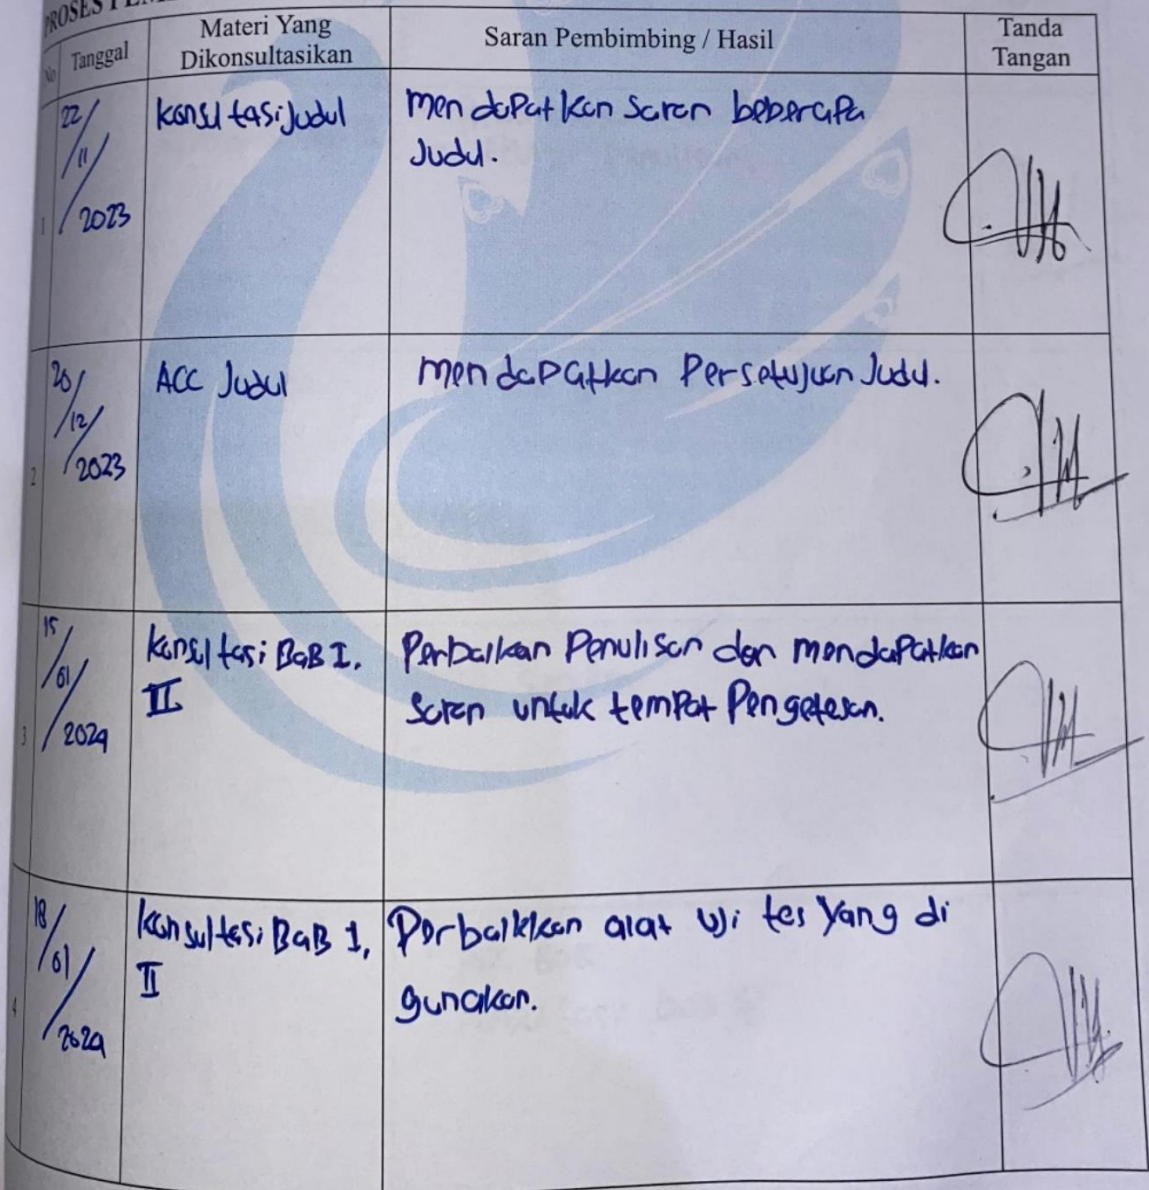 PROSES
No
Tanggal
Materi Yang
Dikonsultasikan
Saran Pembimbing / Hasil
Tanda
Tangan
1
22/
11/
2023
konsultasi Judul
mendapatkan saran beberapa
Judul.
2
20/
12/
2023
ACC Judul
mendapatkan Persetujuan Judul.
3
15/
01/
2024
konsultasi BaB I,
II
Perbaikan Penulisan dan mendapatkan
saran untuk tempat Pengetesan.
4
18/
01/
2024
konsultasi BaB 1,
II
Perbaikkan alat uji tes yang di
gunakan.